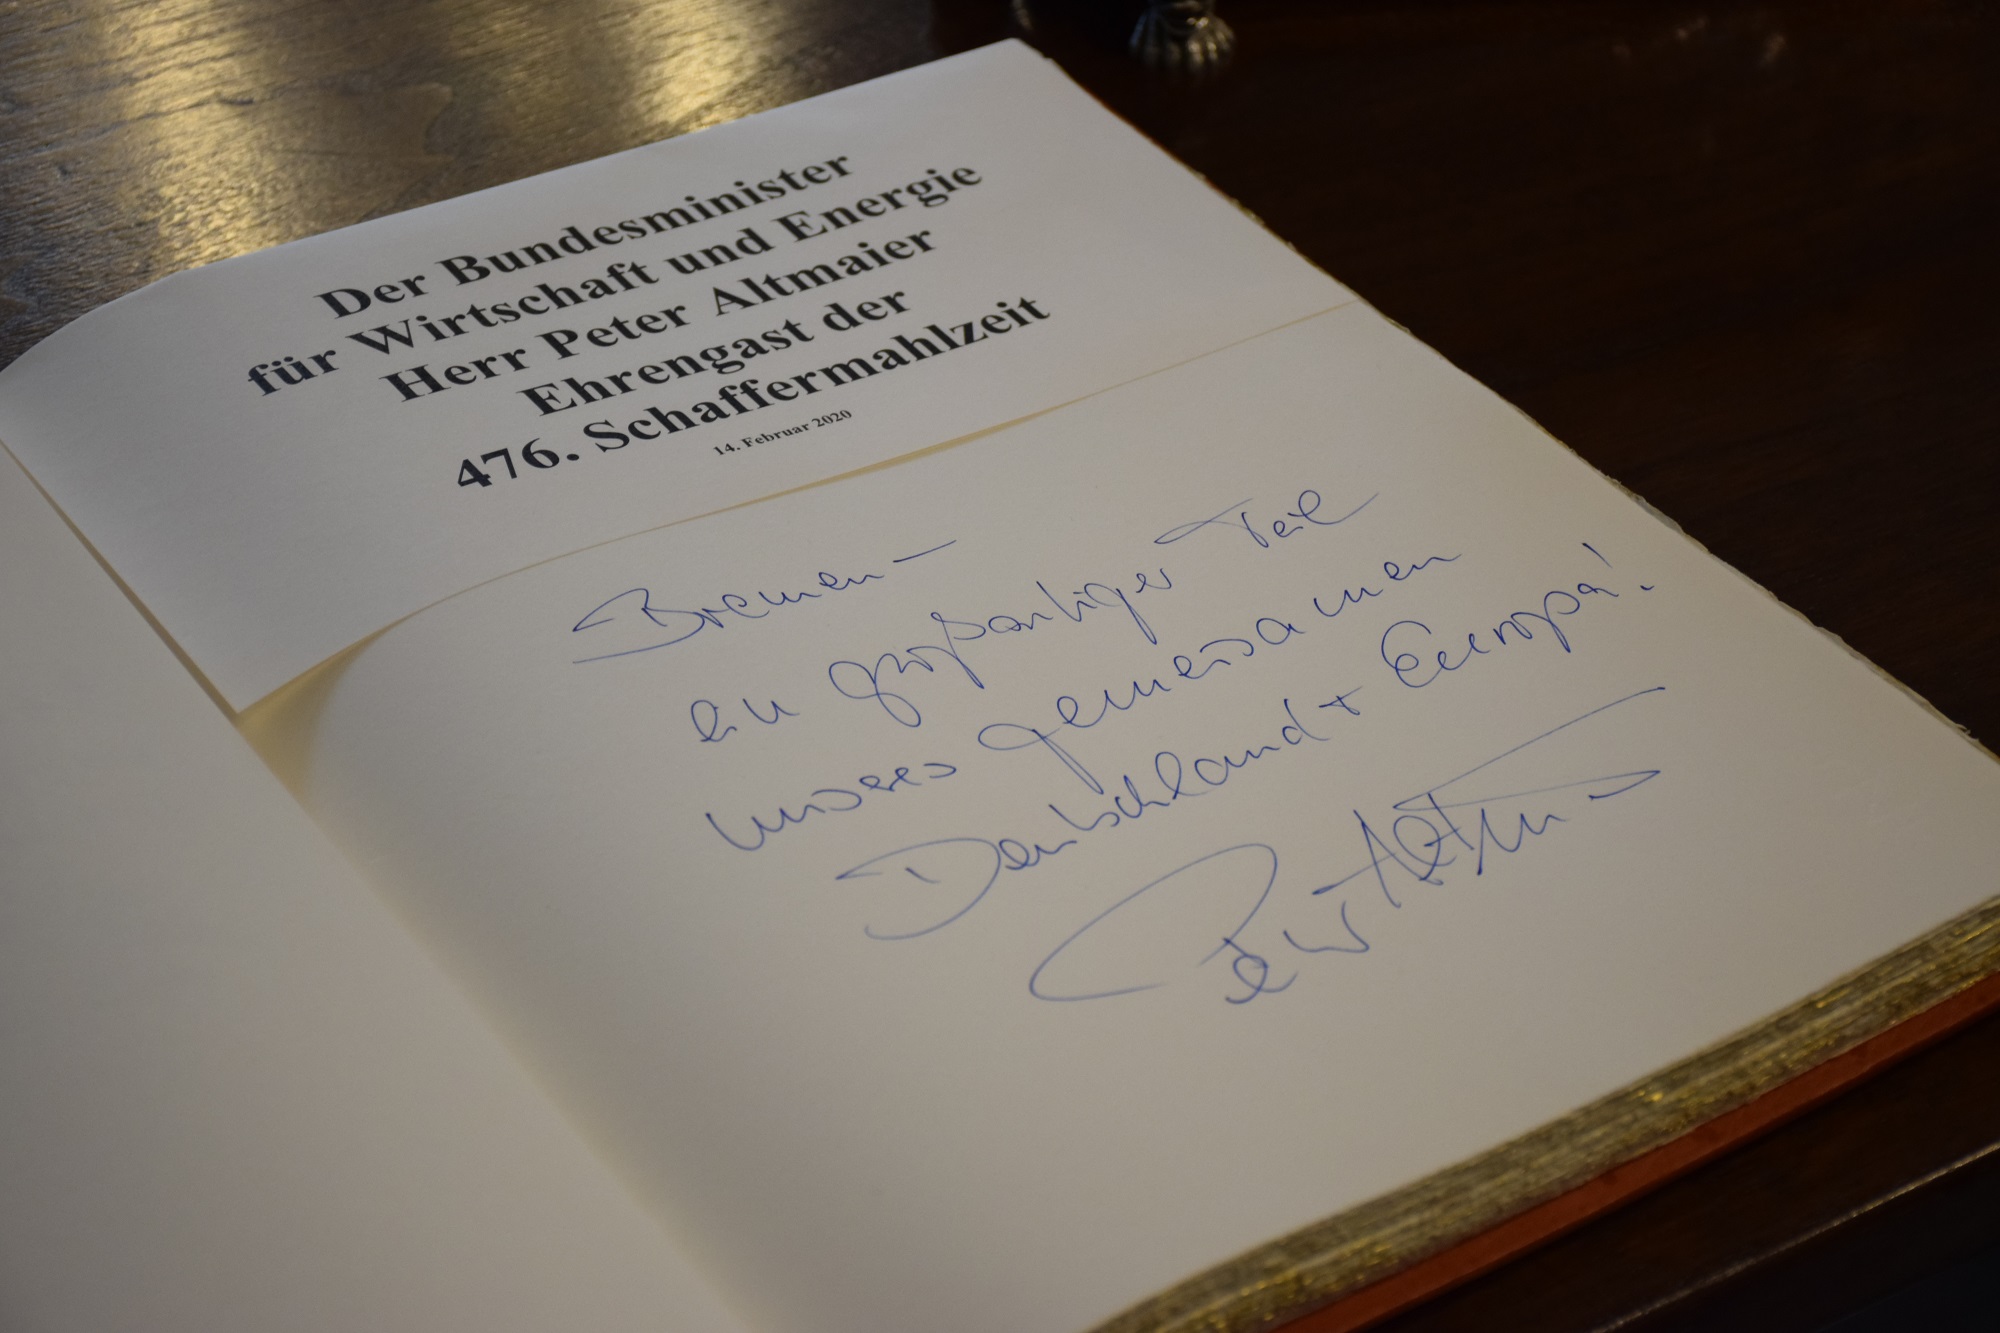 Der Bundesminister
für Wirtschaft und Energie
Herr Peter Altmaier
Ehrengast der
476. Schaffermahlzeit
14. Februar 2020
Bremen –
ein großartiger Teil
unseres gemeinsamen
Deutschland + Europa!
Peter Altmaier